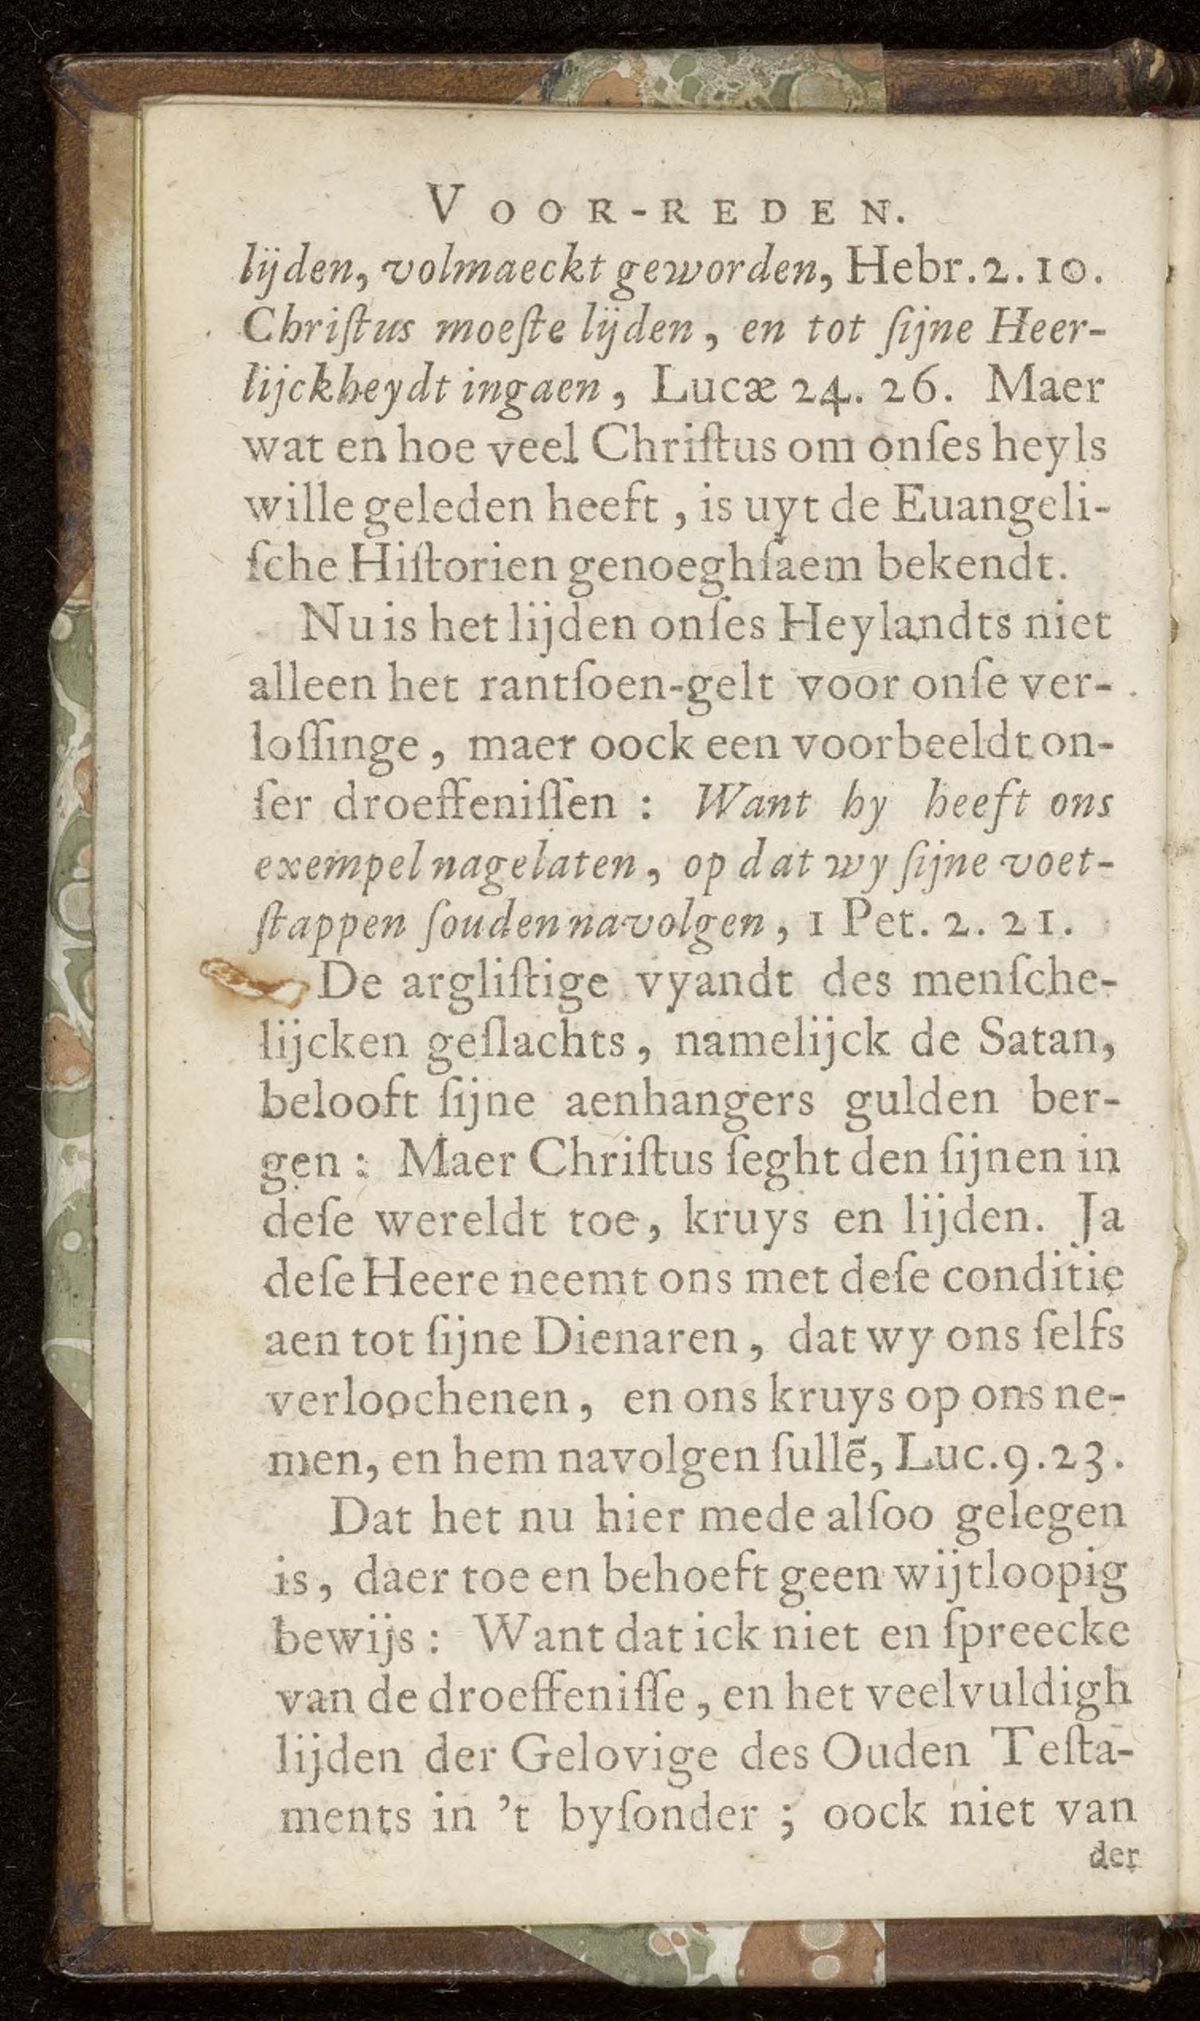 VOOR-REDEN.
lijden, volmaeckt geworden, Hebr. 2. 10.
Chriſtus moeſte lijden, en tot ſijne Heer-
lijckheydt ingaen, Lucæ 24. 26. Maer
wat en hoe veel Chriſtus om onſes heyls
wille geleden heeft, is uyt de Euangeli-
ſche Hiſtorien genoeghſaem bekendt.
Nu is het lijden onſes Heylandts niet
alleen het rantſoen-gelt voor onſe ver-
loſſinge, maer oock een voorbeeldt on-
ſer droeffeniſſen: Want hy heeft ons
exempel nagelaten, op dat wy ſijne voet-
ſtappen ſouden navolgen, 1 Pet. 2. 21.
De argliſtige vyandt des menſche-
lijcken geſlachts, namelijck de Satan,
belooft ſijne aenhangers gulden ber-
gen: Maer Chriſtus ſeght den ſijnen in
deſe wereldt toe, kruys en lijden. Ja
deſe Heere neemt ons met deſe conditie
aen tot ſijne Dienaren, dat wy ons ſelfs
verloochenen, en ons kruys op ons ne-
men, en hem navolgen ſullẽ, Luc. 9. 23.
Dat het nu hier mede alſoo gelegen
is, daer toe en behoeft geen wijtloopig
bewijs: Want dat ick niet en ſpreecke
van de droeffeniſſe, en het veelvuldigh
lijden der Gelovige des Ouden Teſta-
ments in 't byſonder; oock niet van
der